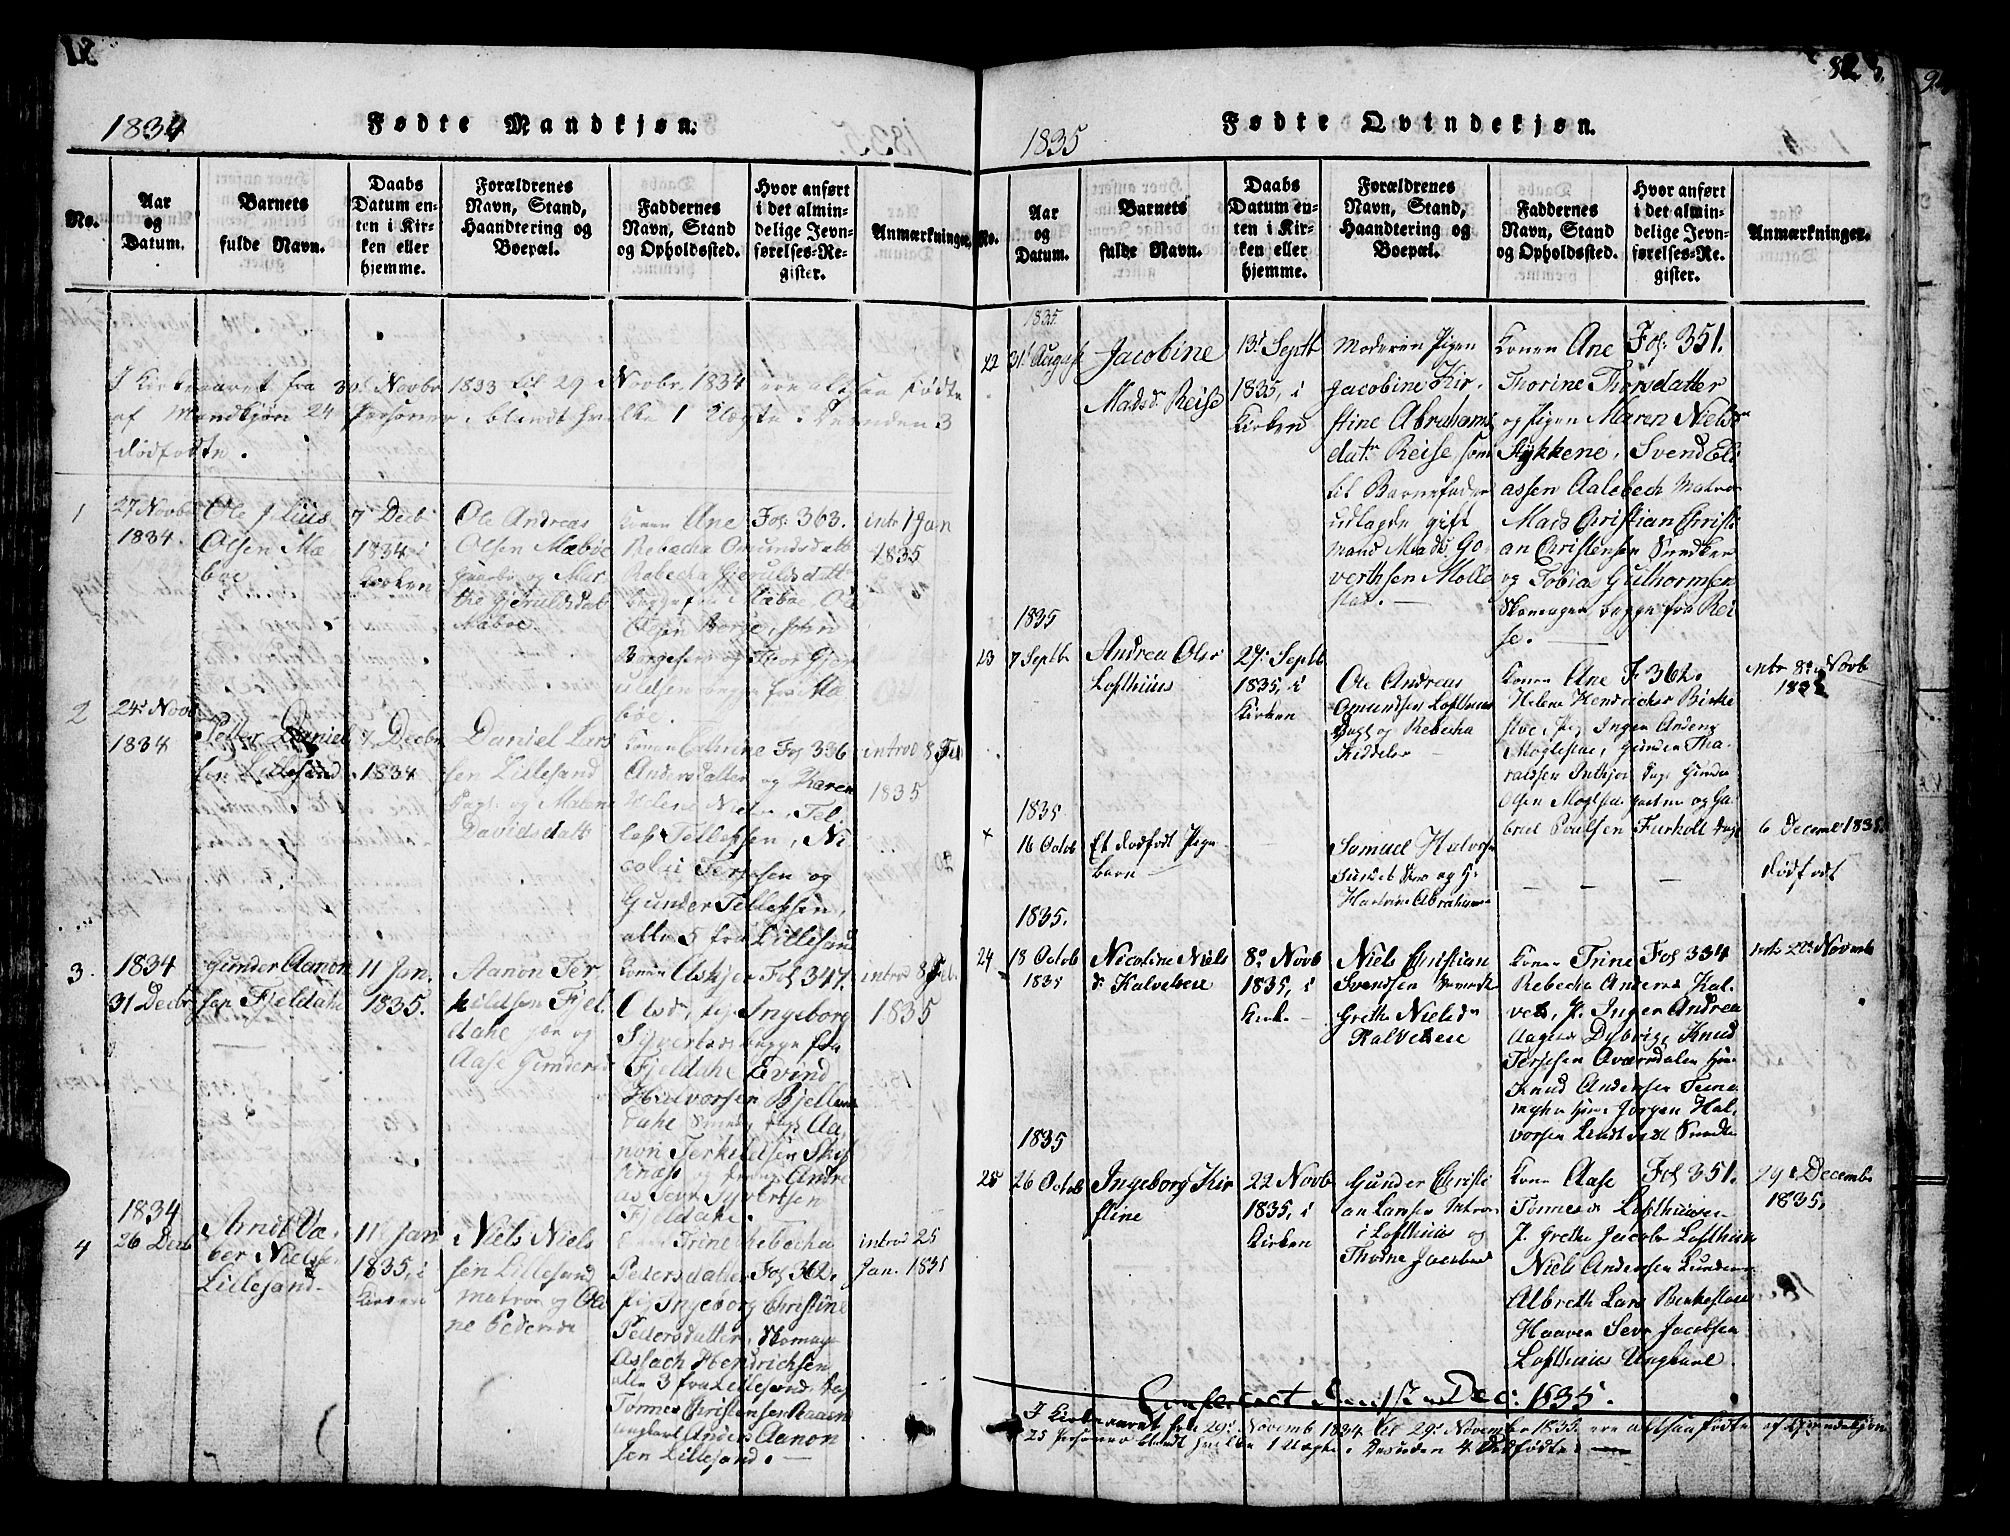 1834
Fødte Mandkjøn.
No.
Aar
og
Datum.
Barnets
fulde Navn.
Daabs
Datum en-
ten i Kir-
ken eller
hjemme.
Forældrenes
Navn, Stand,
Haandtering og
Boepæl.
Faddernes
Navn, Stand
og Opholdssted.
Hvor anført
i det almin-
delige Jevn-
førelses-Re-
gister.
Anmærkninger.
I Kirkeaaret fra 30. Novbr. 1833 til 29. Novbr. 1834 ere altsaa fødte
af Mandkjøn 24 Personer, blandt hvilke 1 Uægte. Desuden 3
dødfødte.
1
27 Novbr
1834.
Ole Julius
Olsen Mæ
bøe
7 Decb
1834 i
Kirken
Ole Andreas
Olsen Mæbøe
Gaarbr og Mar
the Gjeruldsdat
Mæbøe.
Konen Ane
Rebecha Omundsdatt
Rebecha Gjeruldsdatt
begge fra Mæbøe, Ole
Olsen Borge, John
Borgesen og Thor Gjer
uldsen begge fra Mæ
bøe.
Fol 363.
intr 1 Jan
1835
2
24 Novb
1834
Peder Daniel
sen Lillesand
7 Decbr
1834
Daniel Lars
sen Lillesand
Dagl. og Malene
Davidsdatt
Konen Cathrine
Andersdatter og Karen
Helene Niels, Tel
lef Tellefsen, Ni
colai Terjesen og
Gunder Tellefsen,
alle 5 fra Lillesand
Fol 336
introd 8 Feb
1835
3.
1834
31 Decbr
Gunder Aanon
sen Fjeldahl
11 Jan.
1835.
Aanon Ter
kildsen Fjel
dahl og
Aase Gunders
Konen Askjer
Olsd, Pig. Ingeborg
Syverts begge fra
Fjeldahl Evind
Halvorsen Bjellan
dahl Aa
non Terkildsen Skif
tenæs og Andre
as Sevr Syvertsen
Fjeldahl.
Fol 347.
introd 8 Feb.
1835
4
1834
26 Decb
Arndt Va
ber Nielsen
Lillesand.
11 Jan
1835, i
Kirken
Niels Niels
sen Lillesand
Matros og Ole
ne Pedersd
Konen Trine Rebecha
Pedersdatter
Pig Ingeborg Christine
Pedersdatter, Skomag
Aslach Hendrichsen
alle 3 fra Lillesand, Dag
Tønnes Christensen Raaen
Ungkarl Anders Aanon
sen Lillesand.
Fol 362.
introd 25
Jan. 1835
82
1835
Fødte Qvindekjøn.
No.
Aar
og
Datum.
Barnets
fulde Navn.
Daabs
Datum en-
ten i Kir-
ken eller
hjemme.
Forældrenes
Navn, Stand,
Haandtering og
Boepæl.
Faddernes
Navn, Stand
og Opholdssted.
Hvor anført
i det almin-
delige Jevn-
førelses-Re-
gister.
Anmærkninger.
1835
22
31 August
Jacobine
Madsd. Reise
13 Septb
1835, i
Kirken
Moderen Pigen
Jacobine Kir
stine Abrahams
datr Reise, som
til Barnefader
udlagde gift
mand Mads Go
verthsen Molle
stad.
Konen Ane
Thorine Thorsdatter
og Pigen Maren Nielsd
Stykkene, Svend Eli
assen Aalebech Matro
Mads Christian Christi
an Christensen Snedker
og Tobias Guthormsen
Skomager begge fra Rei
se.
Fol. 351.
1835
23
7 Septb
Andrea Olsd
Lofthuus
27. Septb
1835, i
Kirken
Ole Andreas
Omundsen Lofthuus
Dagl og Rebecha
Kiddels
Konen Ane
Helene Hendrichs Birke
støe, Pig Inger Anders
Moglestue, Gunder Tha
raldsen Inthjor Dagl Gunder
Olsen Moglestue og Ga
briel Poulsen Fuerholt Dagl
F 362.
intr 8. Novb
1835
1835
×
16 Octob
Et dødfødt Pige
barn
Samuel Halvors
og H
Hartvine Abrahams
6 Decemb 1835.
dødfødt
1835.
24
18 Octob
1835
Nicoline Niels
d. Kalvehave
8. Novb
1835, i
Kirk
Niels Christian
Svendsen
Grethe Nielsdr
Kalvehave
Konen Trine
Rebecha Anders Kal
veh, P. Inger Andrea
Aagesd Dybvig, Knud
Terjesen Aværndalen
Knud Andersen Tune
Jørgen Hal
vorsen
Fol 334
intr 20. Novemb
1835
25
26 Octob
Ingeborg Kir
stine
22 Novb
1835, i
Kirken
Gunder Christi
an Larsen Matros
i Lofthuus og
Thorine Jacobsd
Konen Aase
Tønnesd Lofthuus
P. Grethe Jacobs Lofthuus
Niels Andersen
Albreth Lars Birkestøe
Haaver Sevr Jacobsen
Lofthuus Ungkarl.
Fol 351.
29 Decemb
1835.
Confereret den 1ste Dec: 1835.
I Kirkeaaret fra 29. Novemb 1834 til 29. November 1835 ere altsaa fødte af Qvindekjøn
25 Personer blandt hvilke 1 Uægte. Desuden 4 Dødfødte.